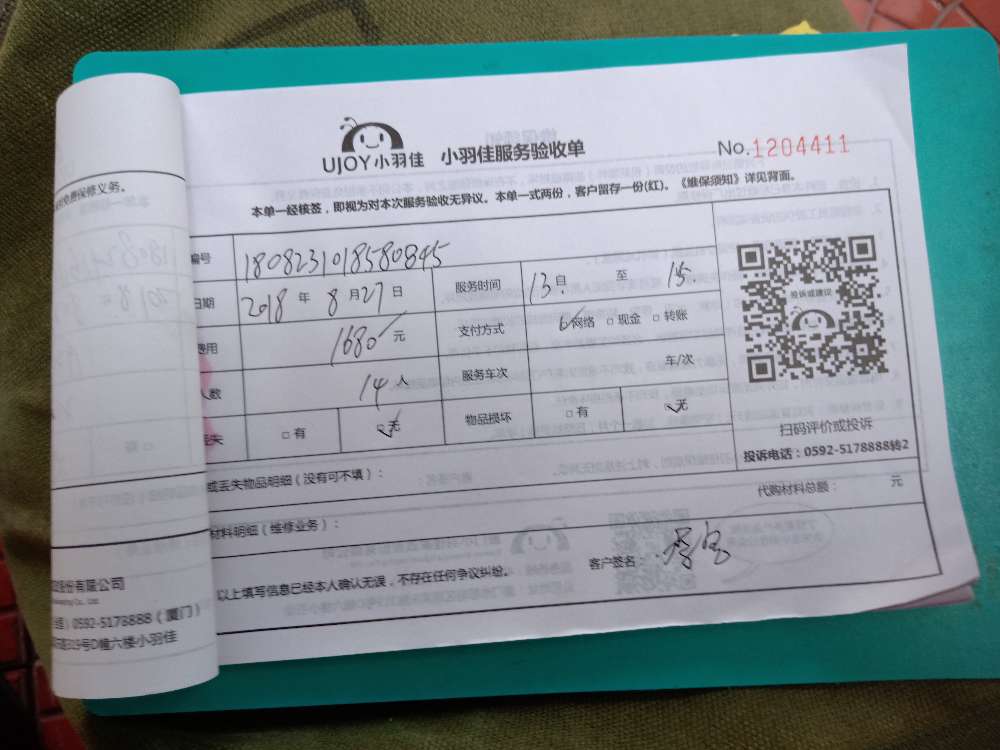 UJOY小羽佳 小羽佳服务验收单 No.1204411
本单一经核签，即视为对本次服务验收无异议。本单一式两份，客户留存一份(红)。《维保须知》详见背面。
编号 1808231018580845
日期 2018 年 8 月 27 日 服务时间 13 自 至 15
费用 1680 元 支付方式 网络 □ 现金 □ 转账
人数 14 人 服务车次 车/次
丢失 □ 有 无 物品损坏 □ 有 无
投诉或建议
扫码评价或投诉
投诉电话：0592-5178888转2
或丢失物品明细（没有可不填）：
代购材料总额： 元
材料明细（维修业务）：
以上填写信息已经本人确认无误，不存在任何争议纠纷。 客户签名：
免费保修义务。
股份有限公司
0592-5178888（厦门）
路319号D幢六楼小羽佳